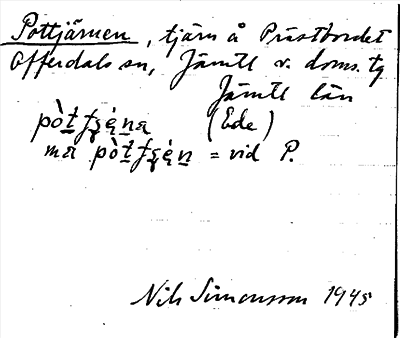 Pottjärnen, tjärn å Prästbordet
Offerdals sn, Jämtl v. doms. tg
Jämtl län
(Ede)
= vid P.
Nils Simonsson 1945